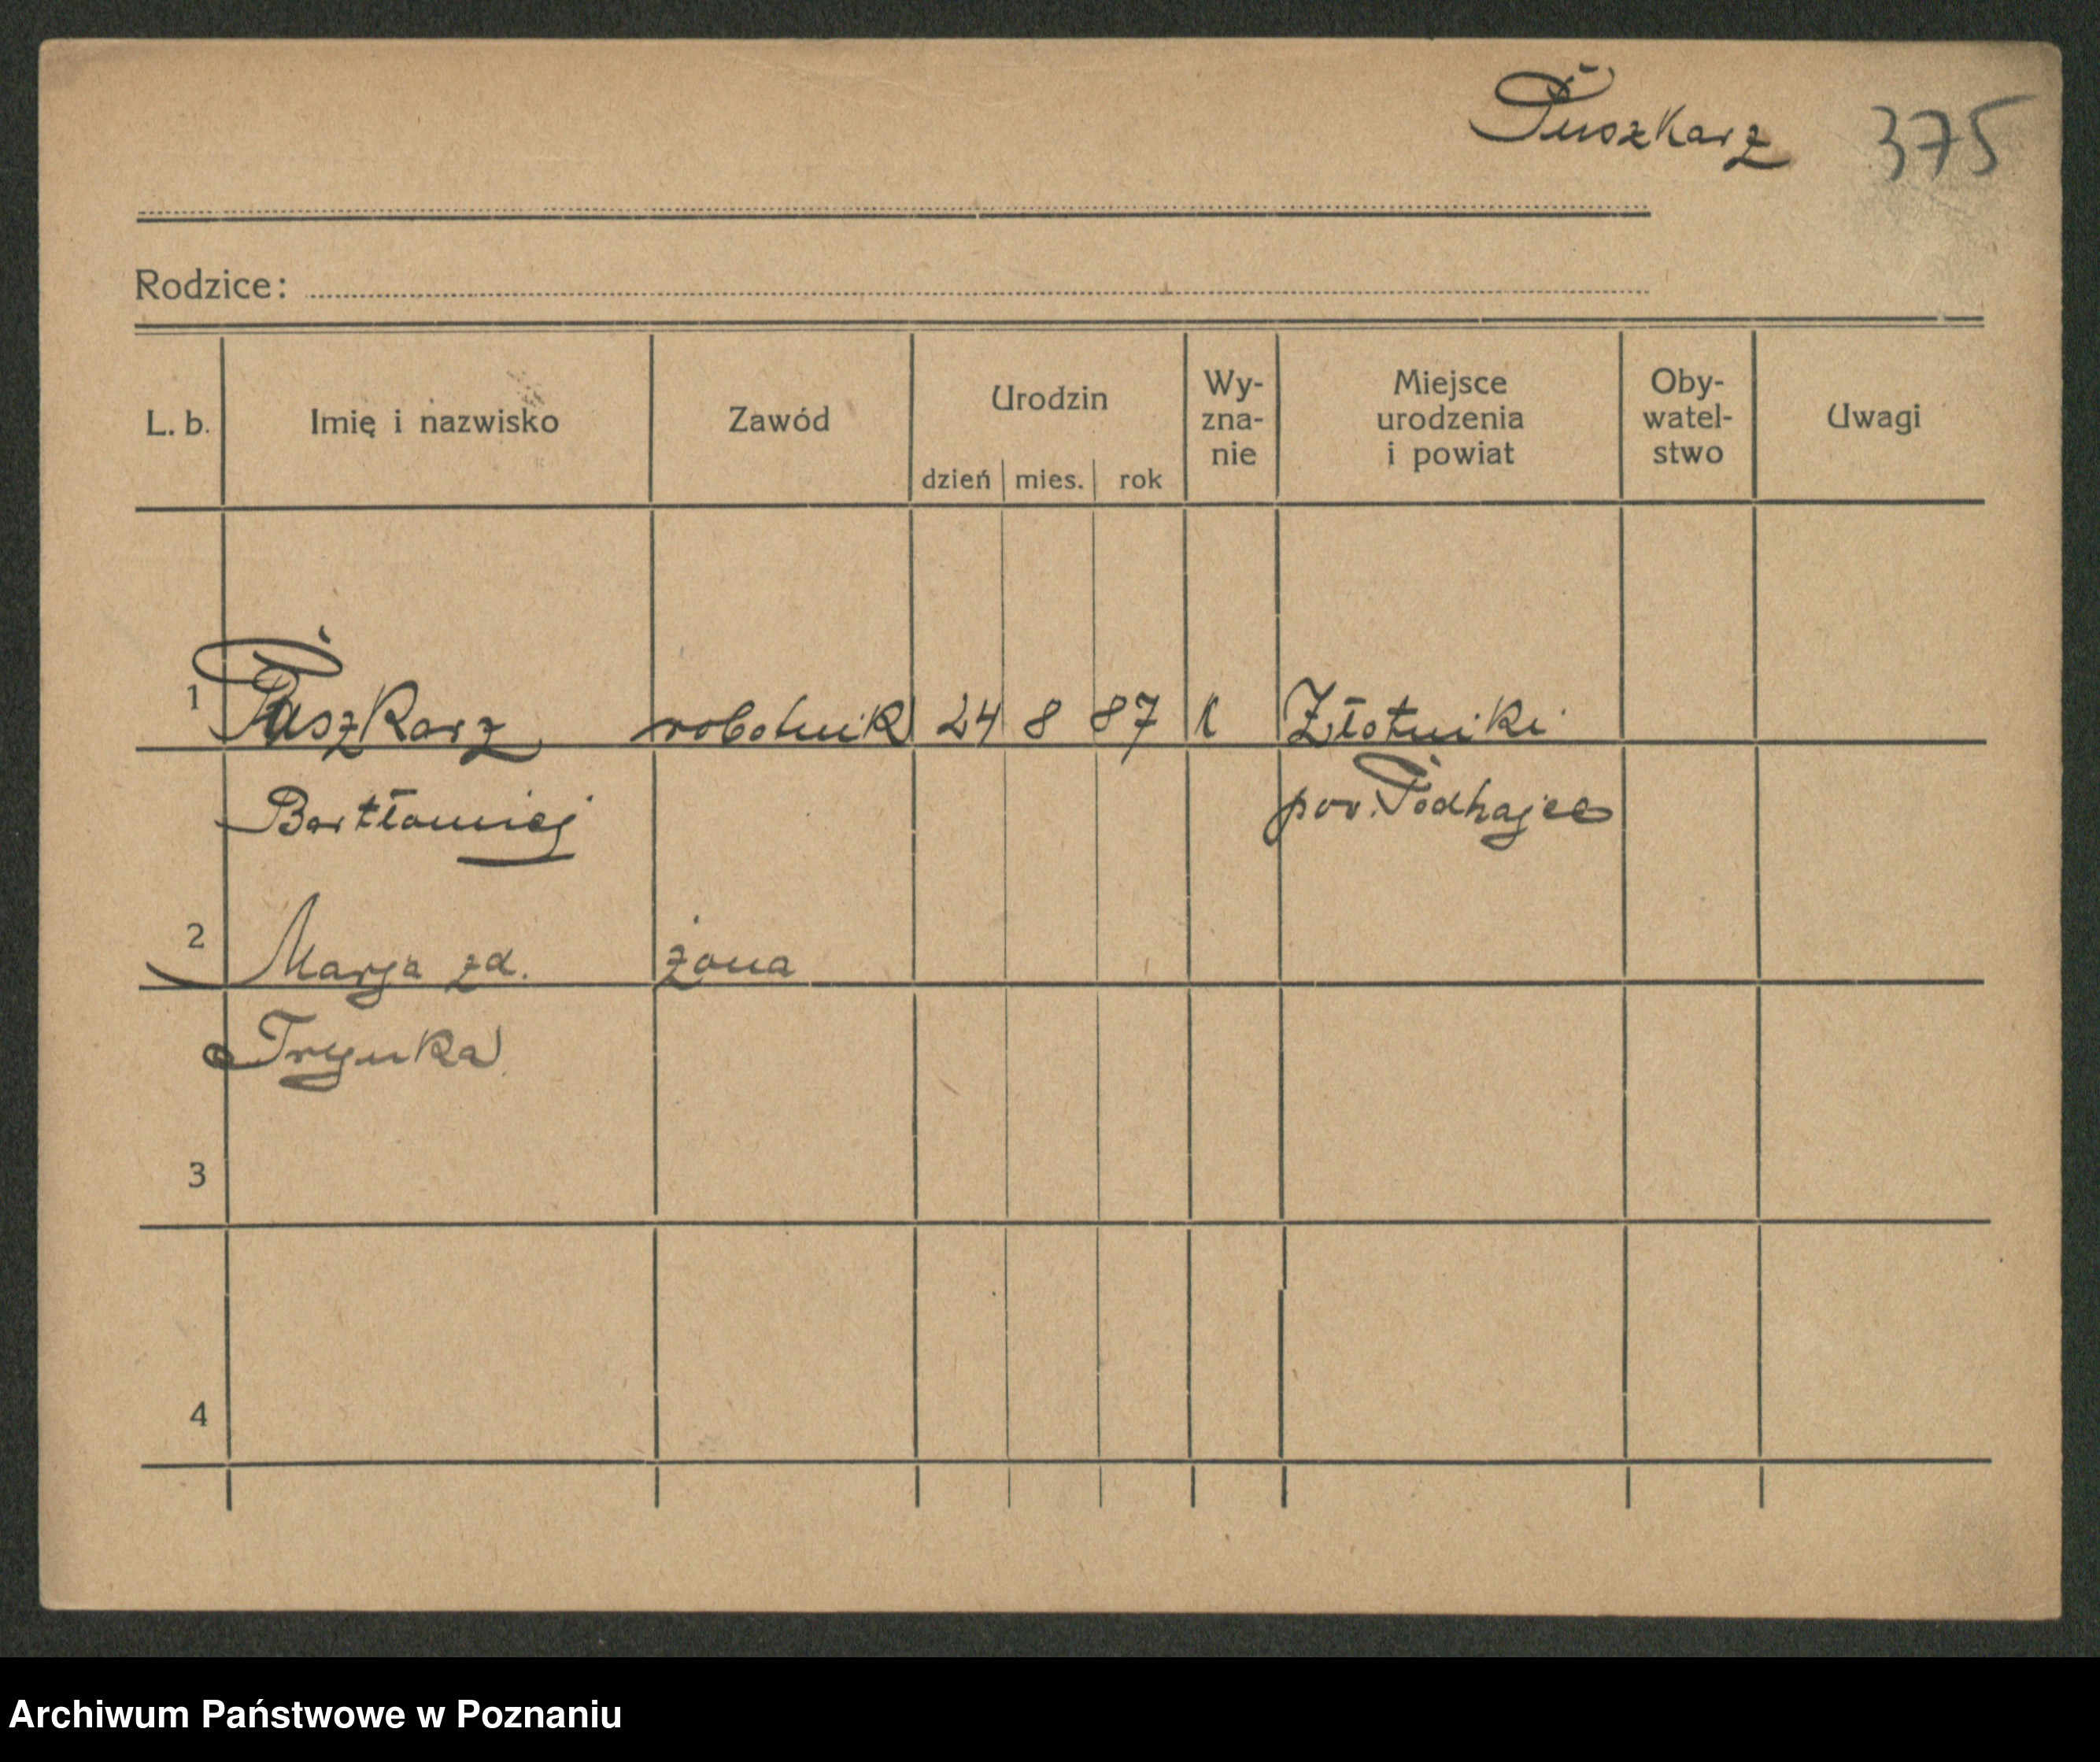 Puszkarz 375
Rodzice:
L. b. Imię i nazwisko Zawód Urodzin dzień mies. rok Wy-zna-nie Miejsce urodzenia i powiat Oby-watel-stwo Uwagi
1 Puszkarz robotnik 24 8 87 k Złotniki
Bartłomiej pow. Podhajce
2 Marja zd. żona
Trynka
3
4
Archiwum Państwowe w Poznaniu